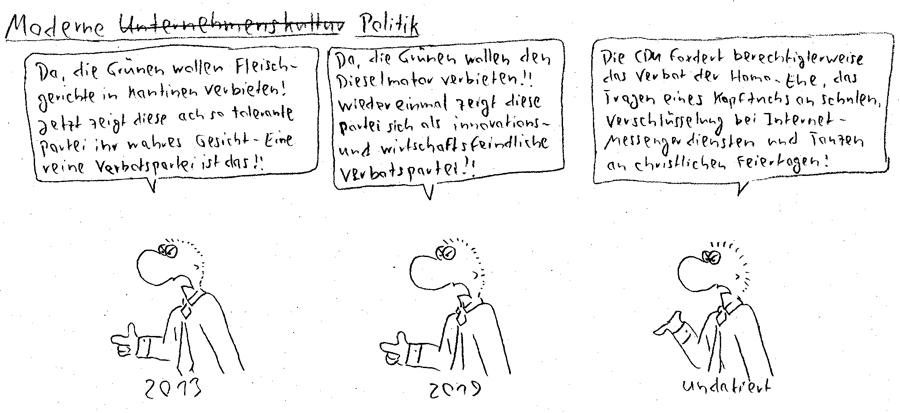 Moderne Unternehmenskultur Politik
Da, die Grünen wollen Fleisch-
gerichte in Kantinen verbieten!
Jetzt zeigt diese ach so tolerante
Partei ihr wahres Gesicht - Eine
reine Verbotspartei ist das!!
Da, die Grünen wollen den
Dieselmotor verbieten!!
Wieder einmal zeigt diese
Partei sich als innovations-
und wirtschaftsfeindliche
Verbotspartei!!
Die CDU fordert berechtigterweise
das Verbot der Homo-Ehe, das
Tragen eines Kopftuchs an Schulen,
Verschlüsselung bei Internet-
Messengerdiensten und Tanzen
an christlichen Feiertagen!
2013
2019
undatiert